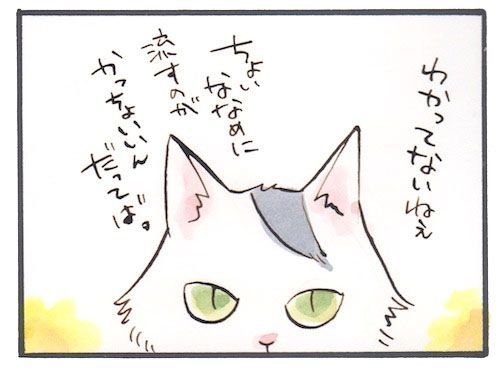 わかってないねぇ
ちょい
ななめに
流すのが
かっちょいいん
だってば。